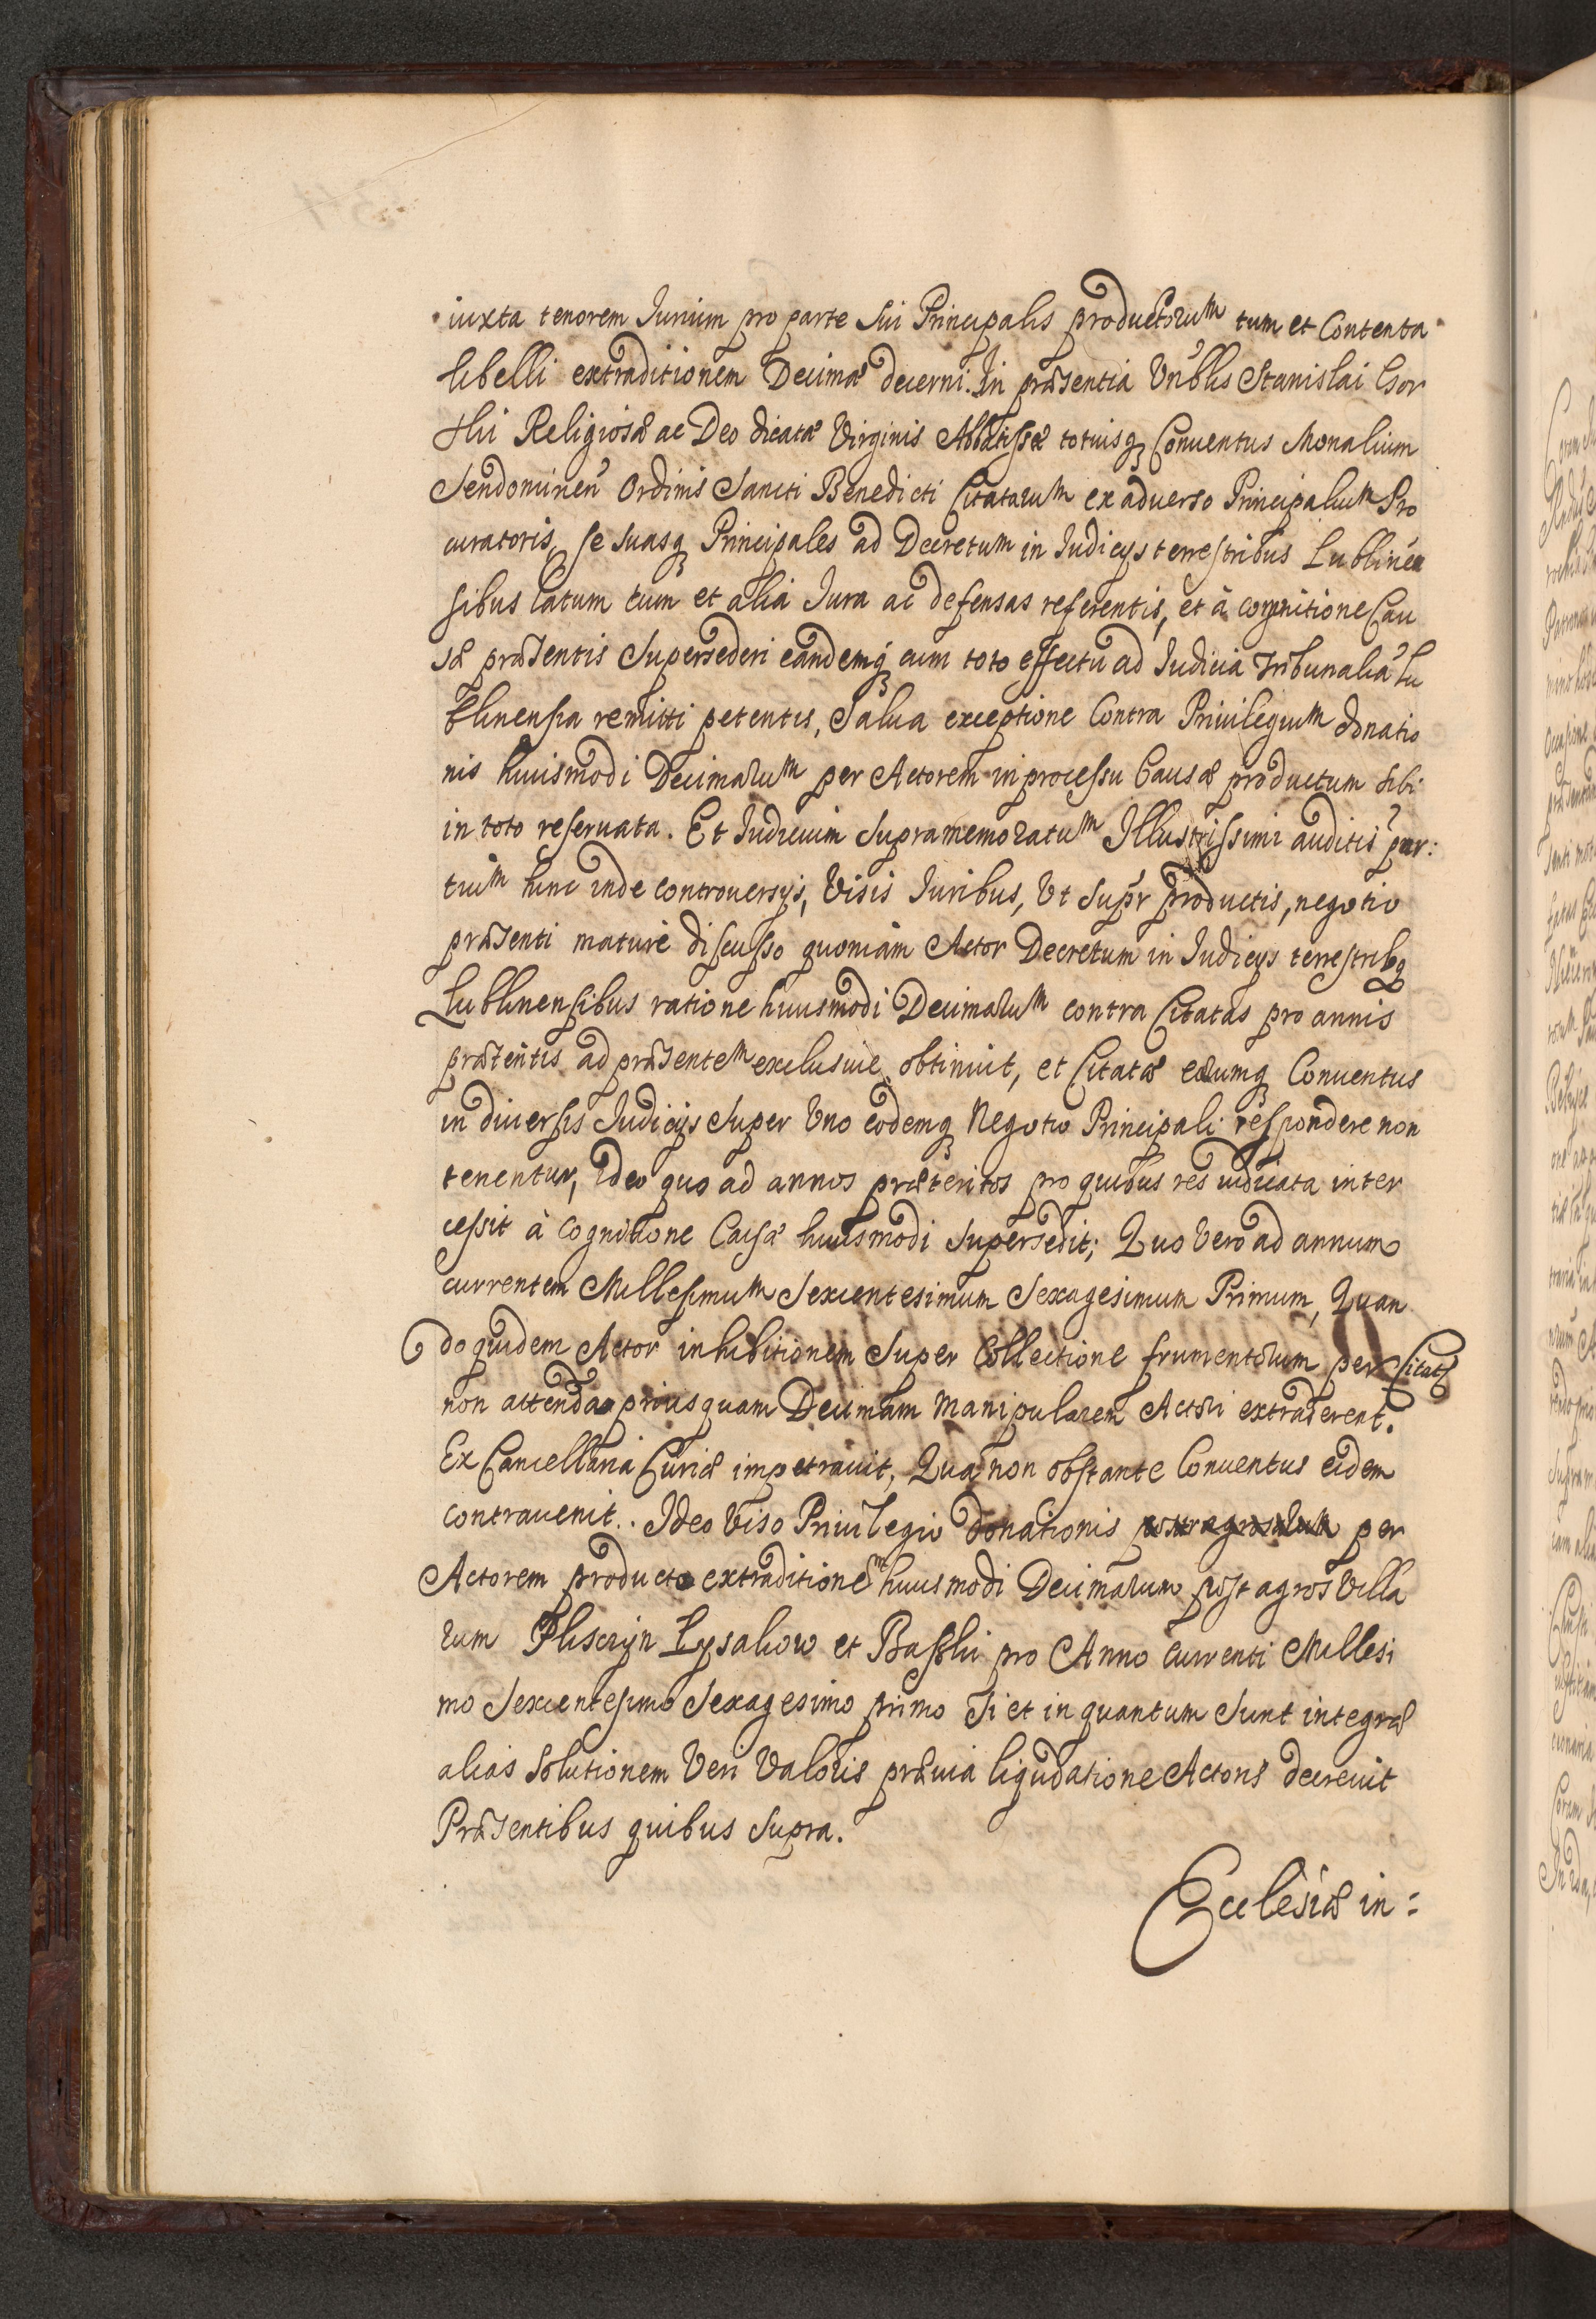 iuxta tenorem Jurium pro parte sui Principalis productorum tum et Contenta
libelli extraditionem Decimæ decerni. In præsentia Vrblis Stanislai
Religiosæ ac Deo dicatæ Virginis Abbatissæ totiusq Conuentus Monalium
Sendominen Ordinis Sancti Benedicti Citatarum ex aduerso Principalium Pro
curatoris, se suasq Principales ad Decretum in Iudicys terrestribus Lublinen
sibus latum tum et alia Iura ac defensas referentis, et à cognitione Cau
sæ præsentis Supersederi eandemq cum toto effectu ad Iudicia Tribunalia Lu
blinensia remitti petentis, Salua exceptione Contra Priuilegium donatio
nis huiusmodi Decimarum per Actorem in processu Causæ productum sibi
in toto reseruata. Et Iudicium Supramemoratum Illustrissimi auditis par:
tium hinc inde controuersys, Visis Iuribus, Vt supr productis, negotio
præsenti mature discusso quoniam Actor Decretum in Iudicys terrestribq
Lublinensibus ratione huiusmodi Decimarum contra Citatas pro annis
prætentis ad præsentem exclusiue obtinuit, et Citatæ earumq Conuentus
in diuersis Iudicys Super Vno eodemq Negotio Principali respondere non
tenentur, Ideo quo ad annos præteritos pro quibus res iudicata inter
cessit à Cognitione Causæ huiusmodi Supersedit; Quo Vero ad annum
currentem Millesimum Sexcentesimum Sexagesimum Primum, Quan
do quidem Actor inhibitionem Super Collectione frumentorum per Citat
non attenda priusquam Decimam Manipularem Actori extraderent.
Ex Cancellaria Curiæ impetrauit, Qua non obstante Conuentus eidem
contrauenit. Ideo Viso Priuilegio donationis per
Actorem producto extraditionem huiusmodi Decimarum post agros Villa
rum Pliszczyn Lysakow et Baszki pro Anno currenti Millesi
mo Sexcentesimo Sexagesimo primo si et in quantum sunt integræ
alias Solutionem Veri Valoris præuia liqudatione Actoris decreuit
Præsentibus quibus supra.
Ecclesiæ in: